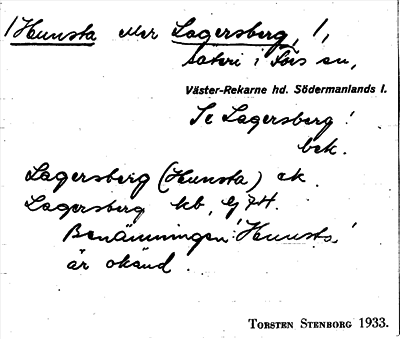 /Hunsta eller Lagersberg, /,
säteri i Fors sn,
Väster-Rekarne hd. Södermanlands l.
Se Lagersberg!
bek.
Lagersberg (Hunsta) ek.
Lagersberg kb, Gj 74.
Benämningen 'Hunsta'
är okänd.
TORSTEN STENBORG 1933.